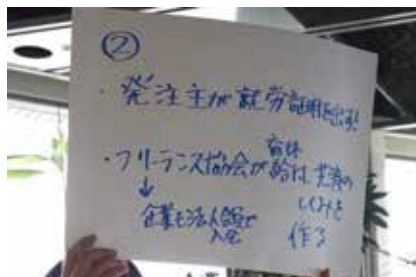 ②
・発注主が就労証明を出す!
・フリーランス協会が給付、共済の
しくみを
作る
↓
企業も法人会員で
入会